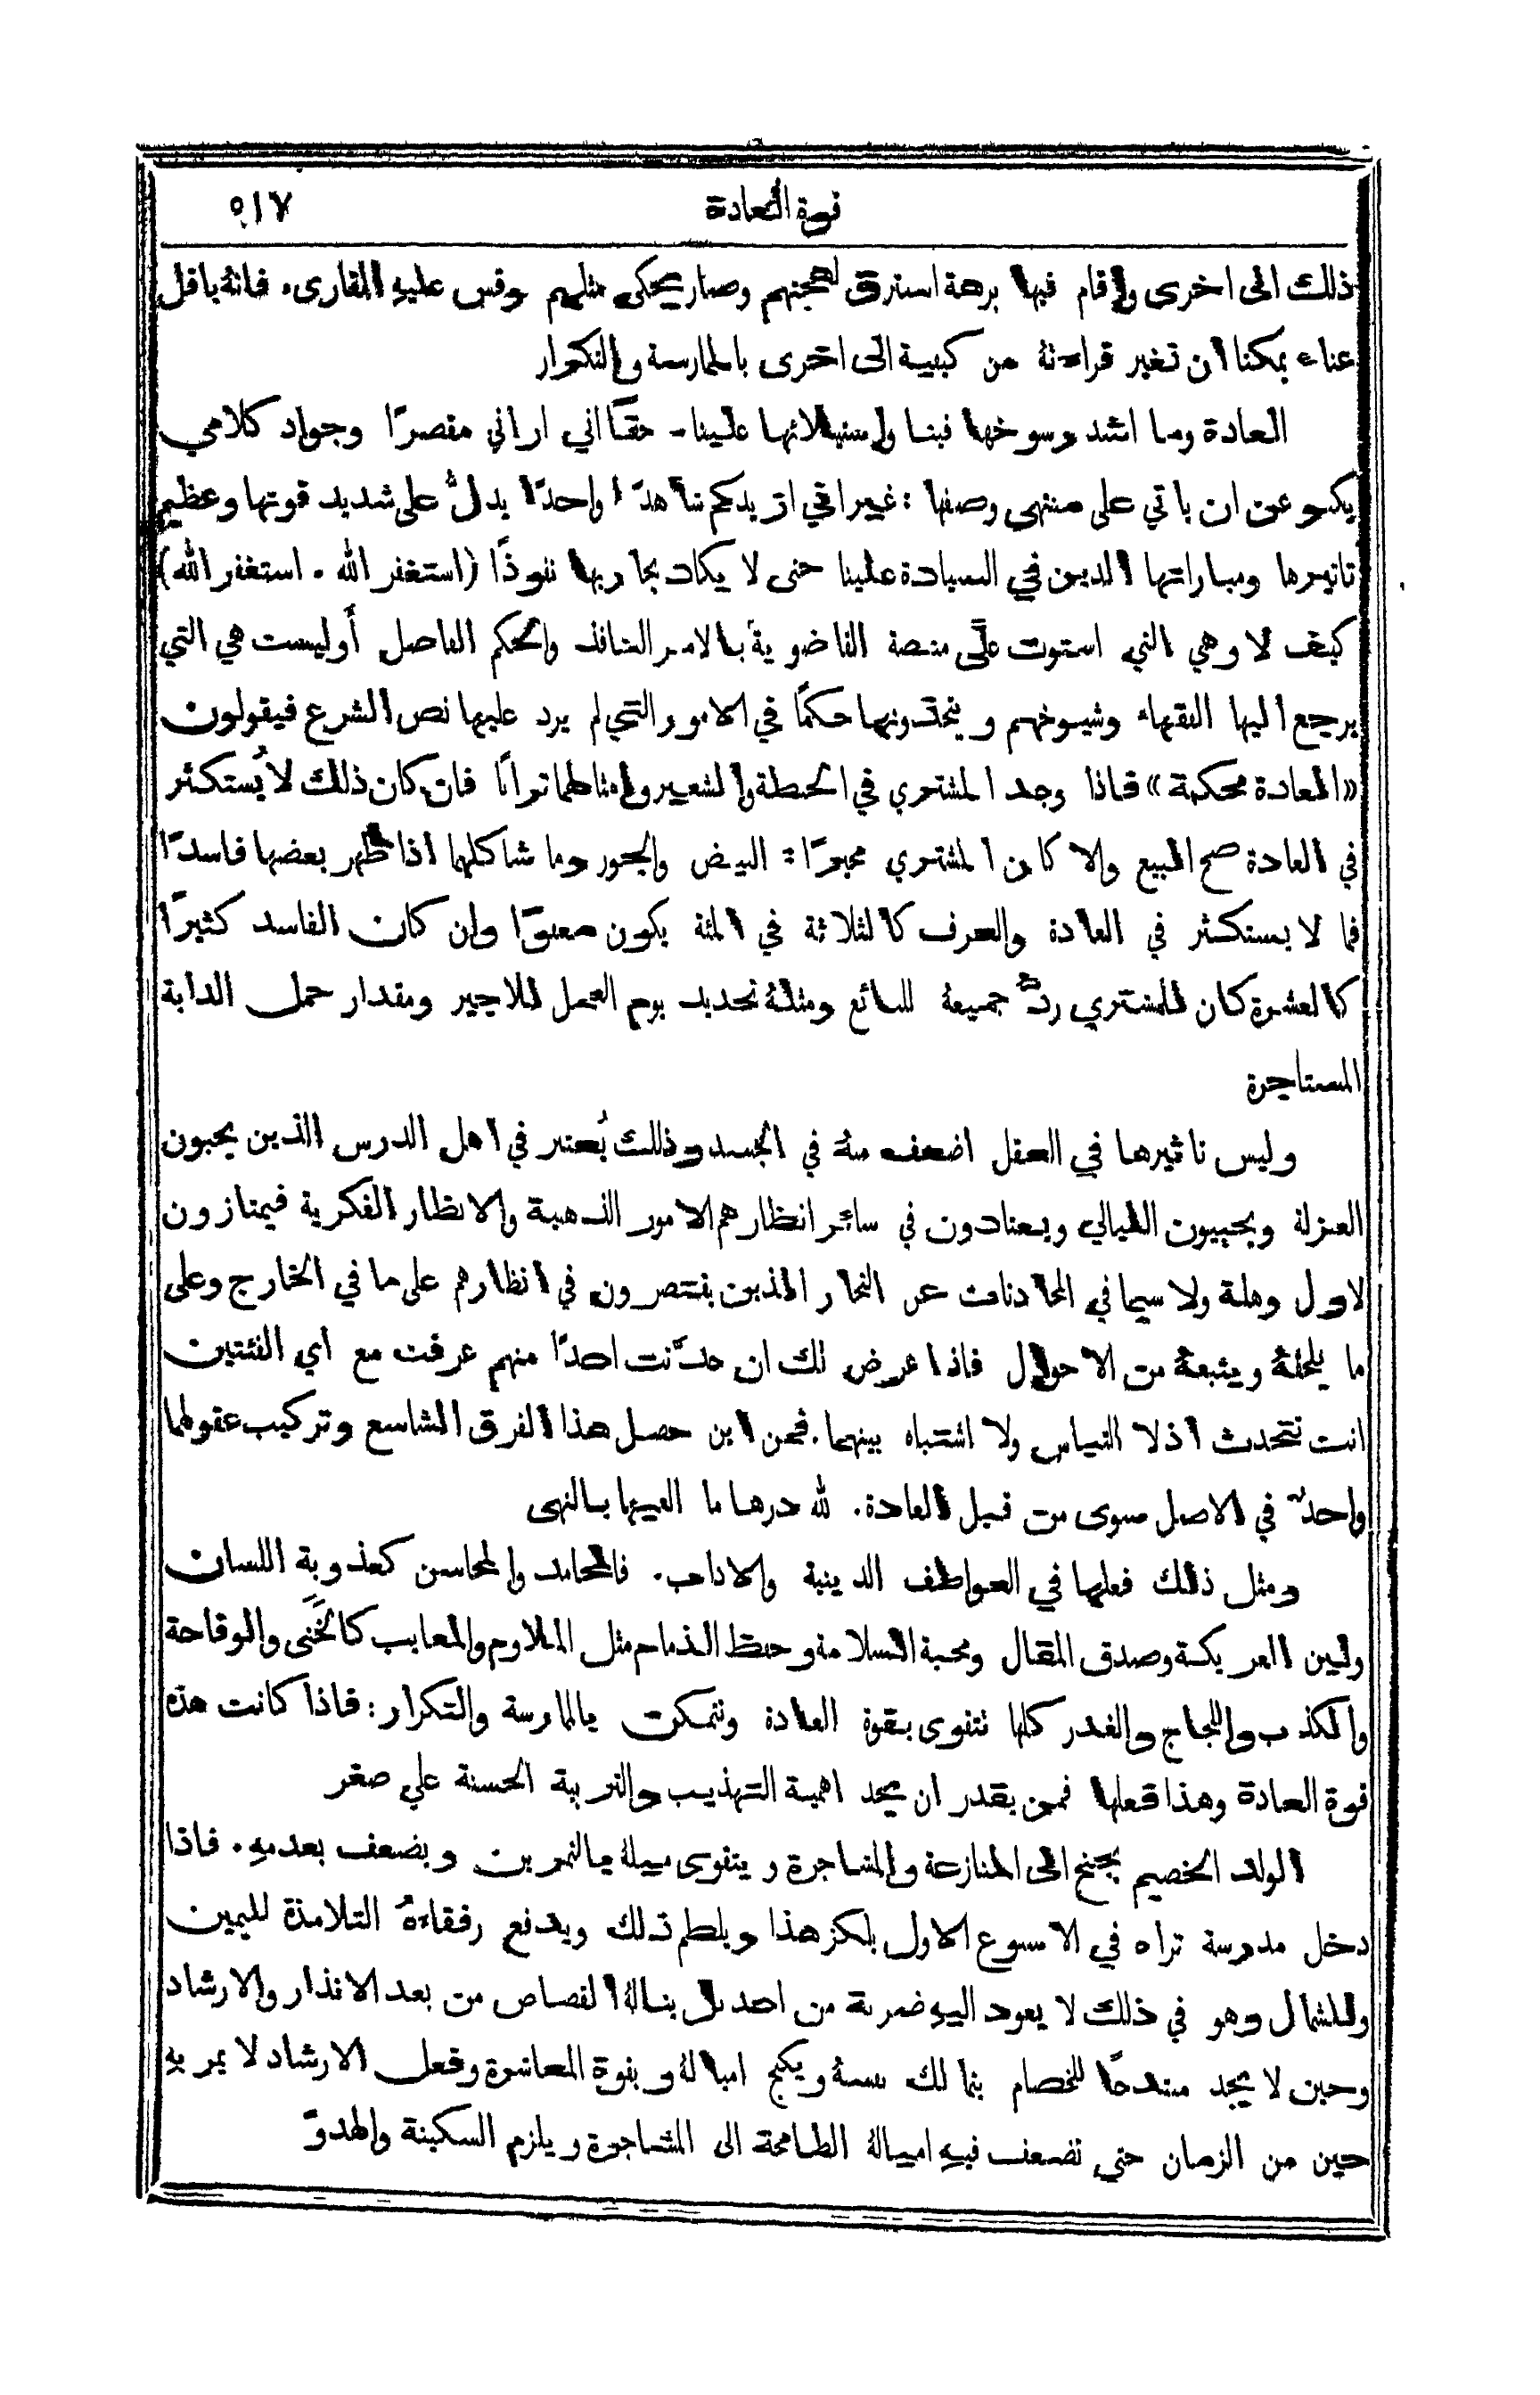 قوة العادة ٥١٧
ذلك الى اخرى واقام فيها برهة استرق لهجتهم وصار يحكي مثلهم وقس عليهِ القارىء. فانهُ باقل
عناء يمكننا ان تغير قراءتهُ من كيفية الى اخرى بالممارسة والتكرار
العادة وما اشد رسوخها فينا واستيلائها علينا. حقًا اني اراني مقصرًا وجواد كلامي
يكبو عن ان ياتي على منتهى وصفها : غير اني ازيدكم شاهدًا واحدًا يدلُّ على شديد قوتها وعظيم
تاثيرها ومباراتها الدين في السيادة علينا حتى لا يكاد يجاريها نفوذًا (استغفر الله . استغفر الله)
كيف لا وهي التي استوت على منصة القاضوية بالامر النافذ والحكم الفاصل أوليست هي التي
يرجع اليها الفقهاء وشيوخهم ويتخذونها حكمًا في الامور التي لم يرد عليها نص الشرع فيقولون
«العادة محكمة» فاذا وجد المشتري في الحنطة والشعير وامثالهما ترابًا فان كان ذلك لا يُستكثر
في العادة صح البيع والا كان المشتري مخيرًا : البيض والجوز وما شاكلها اذا ظهر بعضها فاسدًا
فما لا يستكثر في العادة والعرف كالثلاثة في المئة يكون معفوًا وان كان الفاسد كثيرًا
كالعشرة كان للمشتري ردُّ جميعهُ للبائع ومثلهُ تحديد يوم العمل للاجير ومقدار حمل الدابة
المستاجرة
وليس تاثيرها في العقل اضعف منهُ في الجسد وذلك يُعتبر في اهل الدرس الذين يحبون
العزلة ويحييون الليالي ويعتادون في سائر انظارهم الامور الذهبية والانظار الفكرية فيمتازون
لاول وهلة ولا سيما في المحادثات عن التجار الذين يقتصرون في انظارهم على ما في الخارج وعلى
ما يلحقهُ ويتبعهُ من الاحوال فاذا عرض لك ان حدَّثت احدًا منهم عرفت مع اي الفئتين
انت تتحدث اذ لا التباس ولا اشتباه بينهما. فمن اين حصل هذا الفرق الشاسع وتركيب عقولهما
واحدٌ في الاصل سوى من قبل العادة. لله درها ما العبها بالنهى
ومثل ذلك فعلها في العواطف الدينية والاداب. فالمحامد والمحاسن كعذوبة اللسان
ولين العريكة وصدق المقال ومحبة السلامة وحفظ الذمام مثل الملاوم والمعايب كالخَنَى والوقاحة
والكذب واللجاج والغدر كلها تتقوى بقوة العادة وتتمكن بالممارسة والتكرار : فاذا كانت هذه
قوة العادة وهذا فعلها فمن يقدر ان يحد اهمية التهذيب والتربية الحسنة على صغر
الولد الخصيم يجنح الى المنازعة والمشاجرة ويتقوى ميلهُ بالتمرين ويضعف بعدمهِ. فاذا
دخل مدرسة تراه في الاسبوع الاول يلكز هذا ويلطم ذلك ويدفع رفقاءهُ التلامذة لليمين
وللشمال وهو في ذلك لا يعود اليهِ ضربة من احد بل ينالهُ القصاص من بعد الانذار والارشاد
وحين لا يجد منتدحًا للخصام يتمالك نفسهُ ويكبح اميالهُ وبقوة المعاشرة وفعل الارشاد لا يمر بهِ
حين من الزمان حتى تضعف فيهِ اميالهُ الطامحة الى المشاجرة ويلزم السكينة والهدوّ